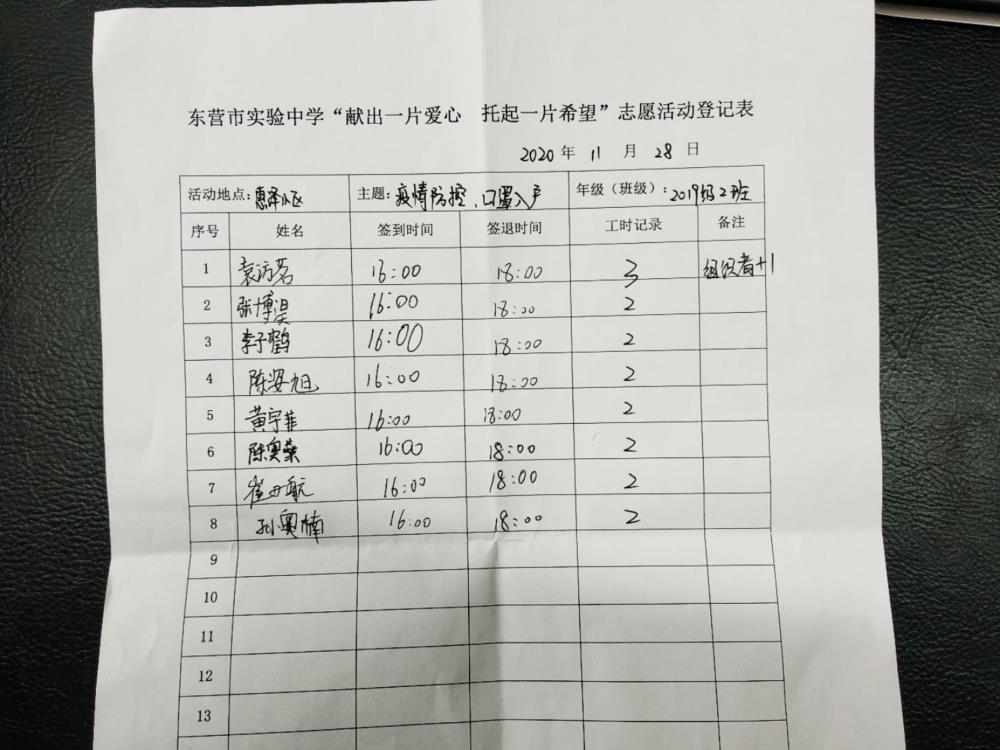 东营市实验中学“献出一片爱心 托起一片希望”志愿活动登记表
2020 年 11 月 28 日
活动地点：惠泽小区 主题：疫情防控、口罩入户 年级（班级）：2019级2班
序号 姓名 签到时间 签退时间 工时记录 备注
1 袁访茗 16:00 18:00 3 组织者+1
2 张博淏 16:00 18:00 2
3 李子鹤 16:00 18:00 2
4 陈姿旭 16:00 18:00 2
5 黄宇菲 16:00 18:00 2
6 陈奥燊 16:00 18:00 2
7 崔丹航 16:00 18:00 2
8 孙奥楠 16:00 18:00 2
9
10
11
12
13